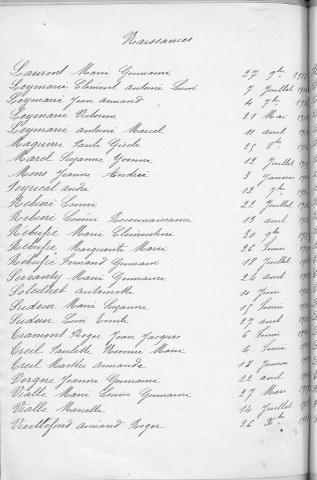 Naissances
Laurent Marie Germaine 27 9bre 191
Leymarie Clément Antoine René 7 Juillet 191
Leymarie Jean Armand 4 7bre 191
Leymarie Victorin 21 Mai 191
Leymarie Antoine Marcel 11 avril 191
Maguerre Paule Gisèle 25 191
Marel Suzanne Yvonne 12 Juillet 191
Mons Jeanne Andrée 3 Janvier 191
Peyrical André 12 7bre 191
Rebière Louise 22 Juillet 191
Rebière Louise 13 avril 191
Rebuffe Marie Clémentine 30 9bre 191
Rebuffe Marguerite Marie 26 Février 191
Rebuffe Fernand Germain 18 Juillet 191
Servanty Marie Germaine 24 avril 191
Soleilhet Antoinette 10 Juin 191
Sudour Marie Suzanne 15 Février 191
Sudour René Emile 27 avril 191
Tramont Roger Jean Jacques 6 Février 191
Treil Paulette Marie 4 Février 191
Treil Marthe Armande 18 Janvier 191
Vergne Jeanne Germaine 22 avril 191
Vialle Marie Louise Germaine 27 Mars 191
Vialle Marcelle 14 Juillet 191
Vieillefond Armand Roger 26 Xbre 191